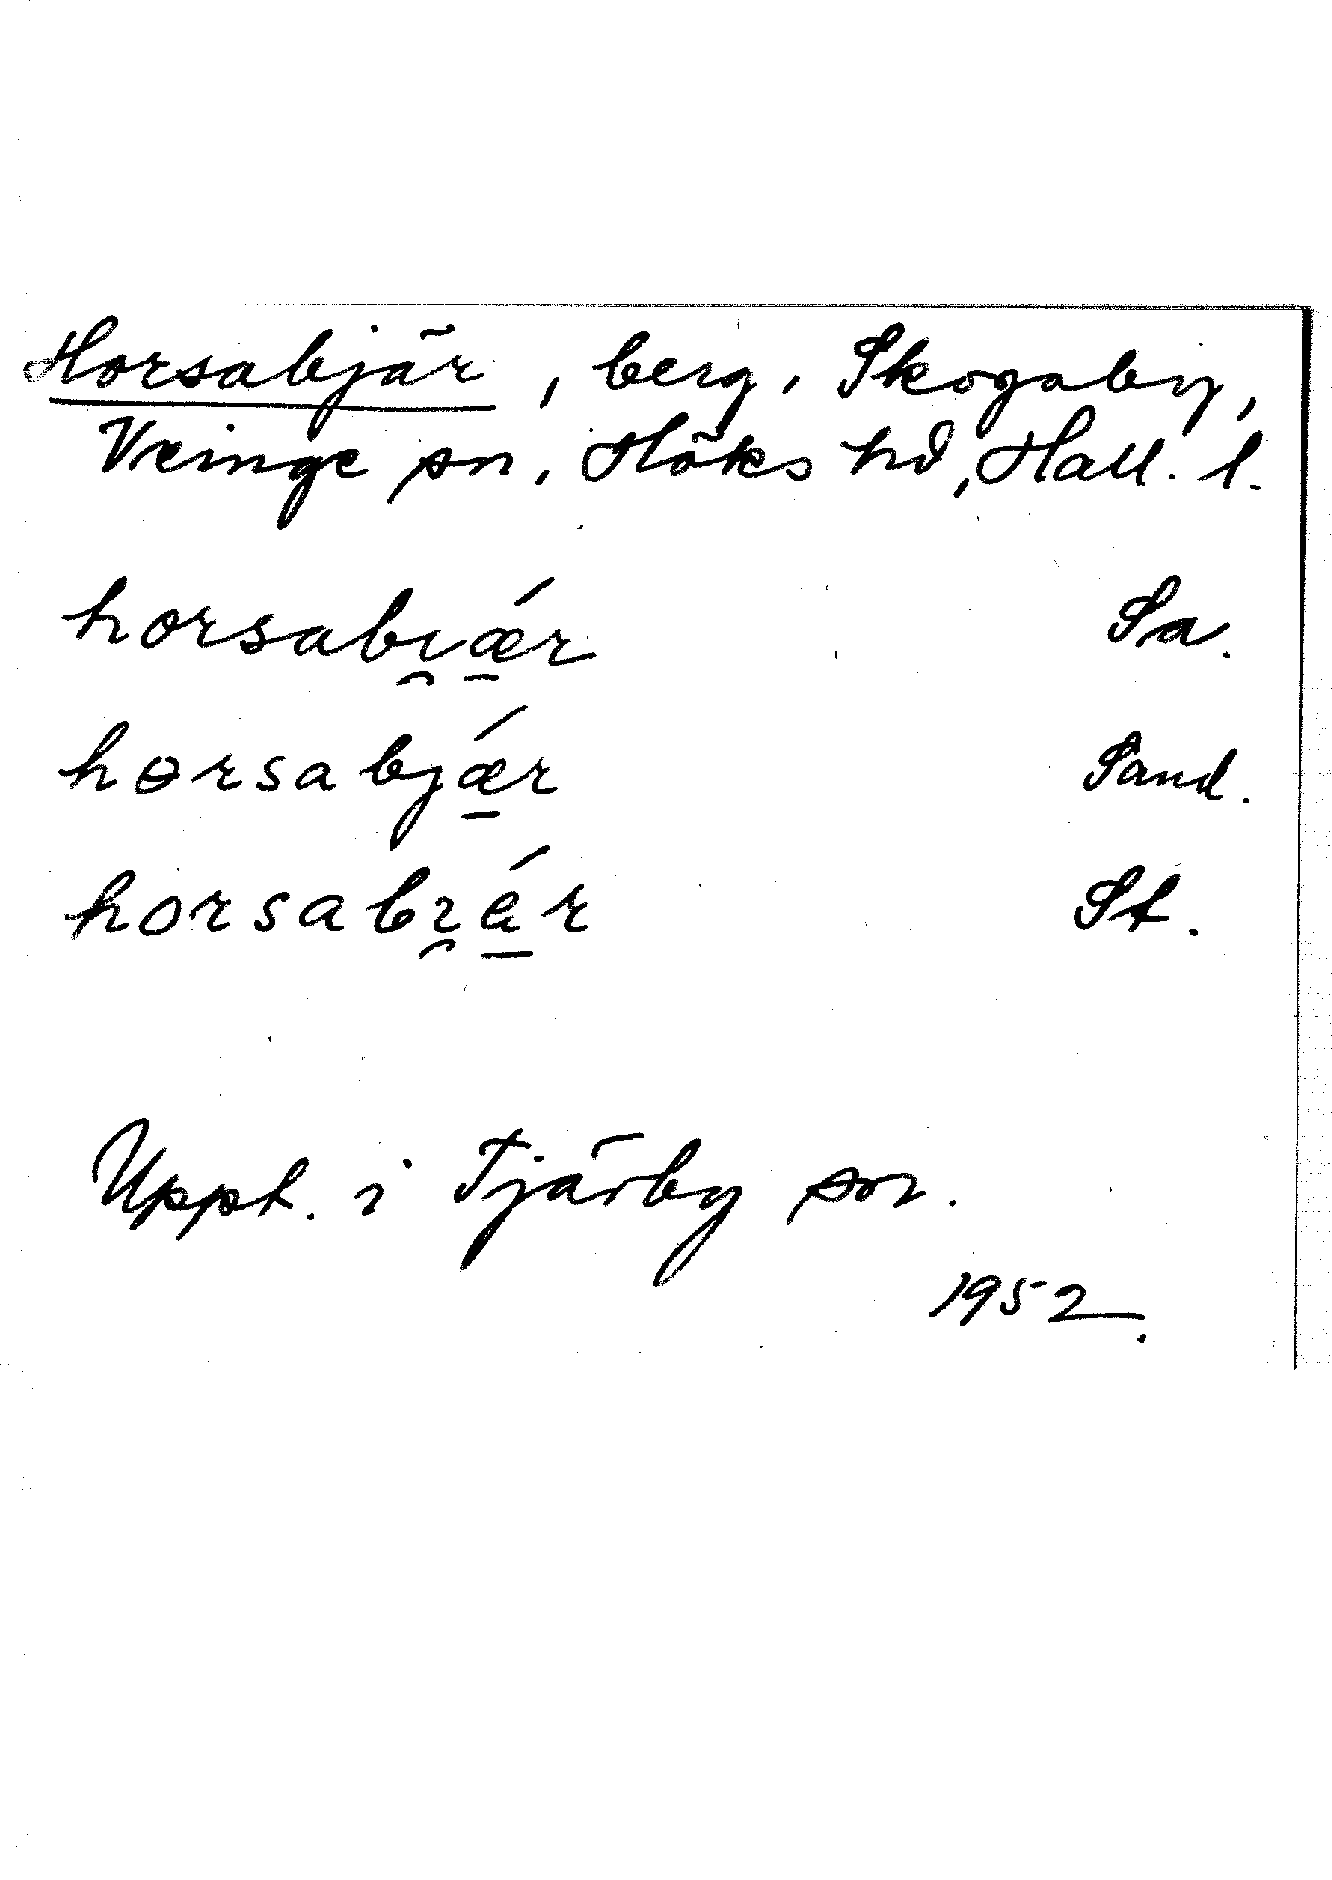 Horsabjär, berg, Skogaby,
Veinge sn, Höks hd, Hall. l.
horsabı̯ǽ̱r Sa.
hɵrsabjǽ̱r Sand.
horsabı̯á̱r St.
Uppt. i Tjärby sn.
1952.